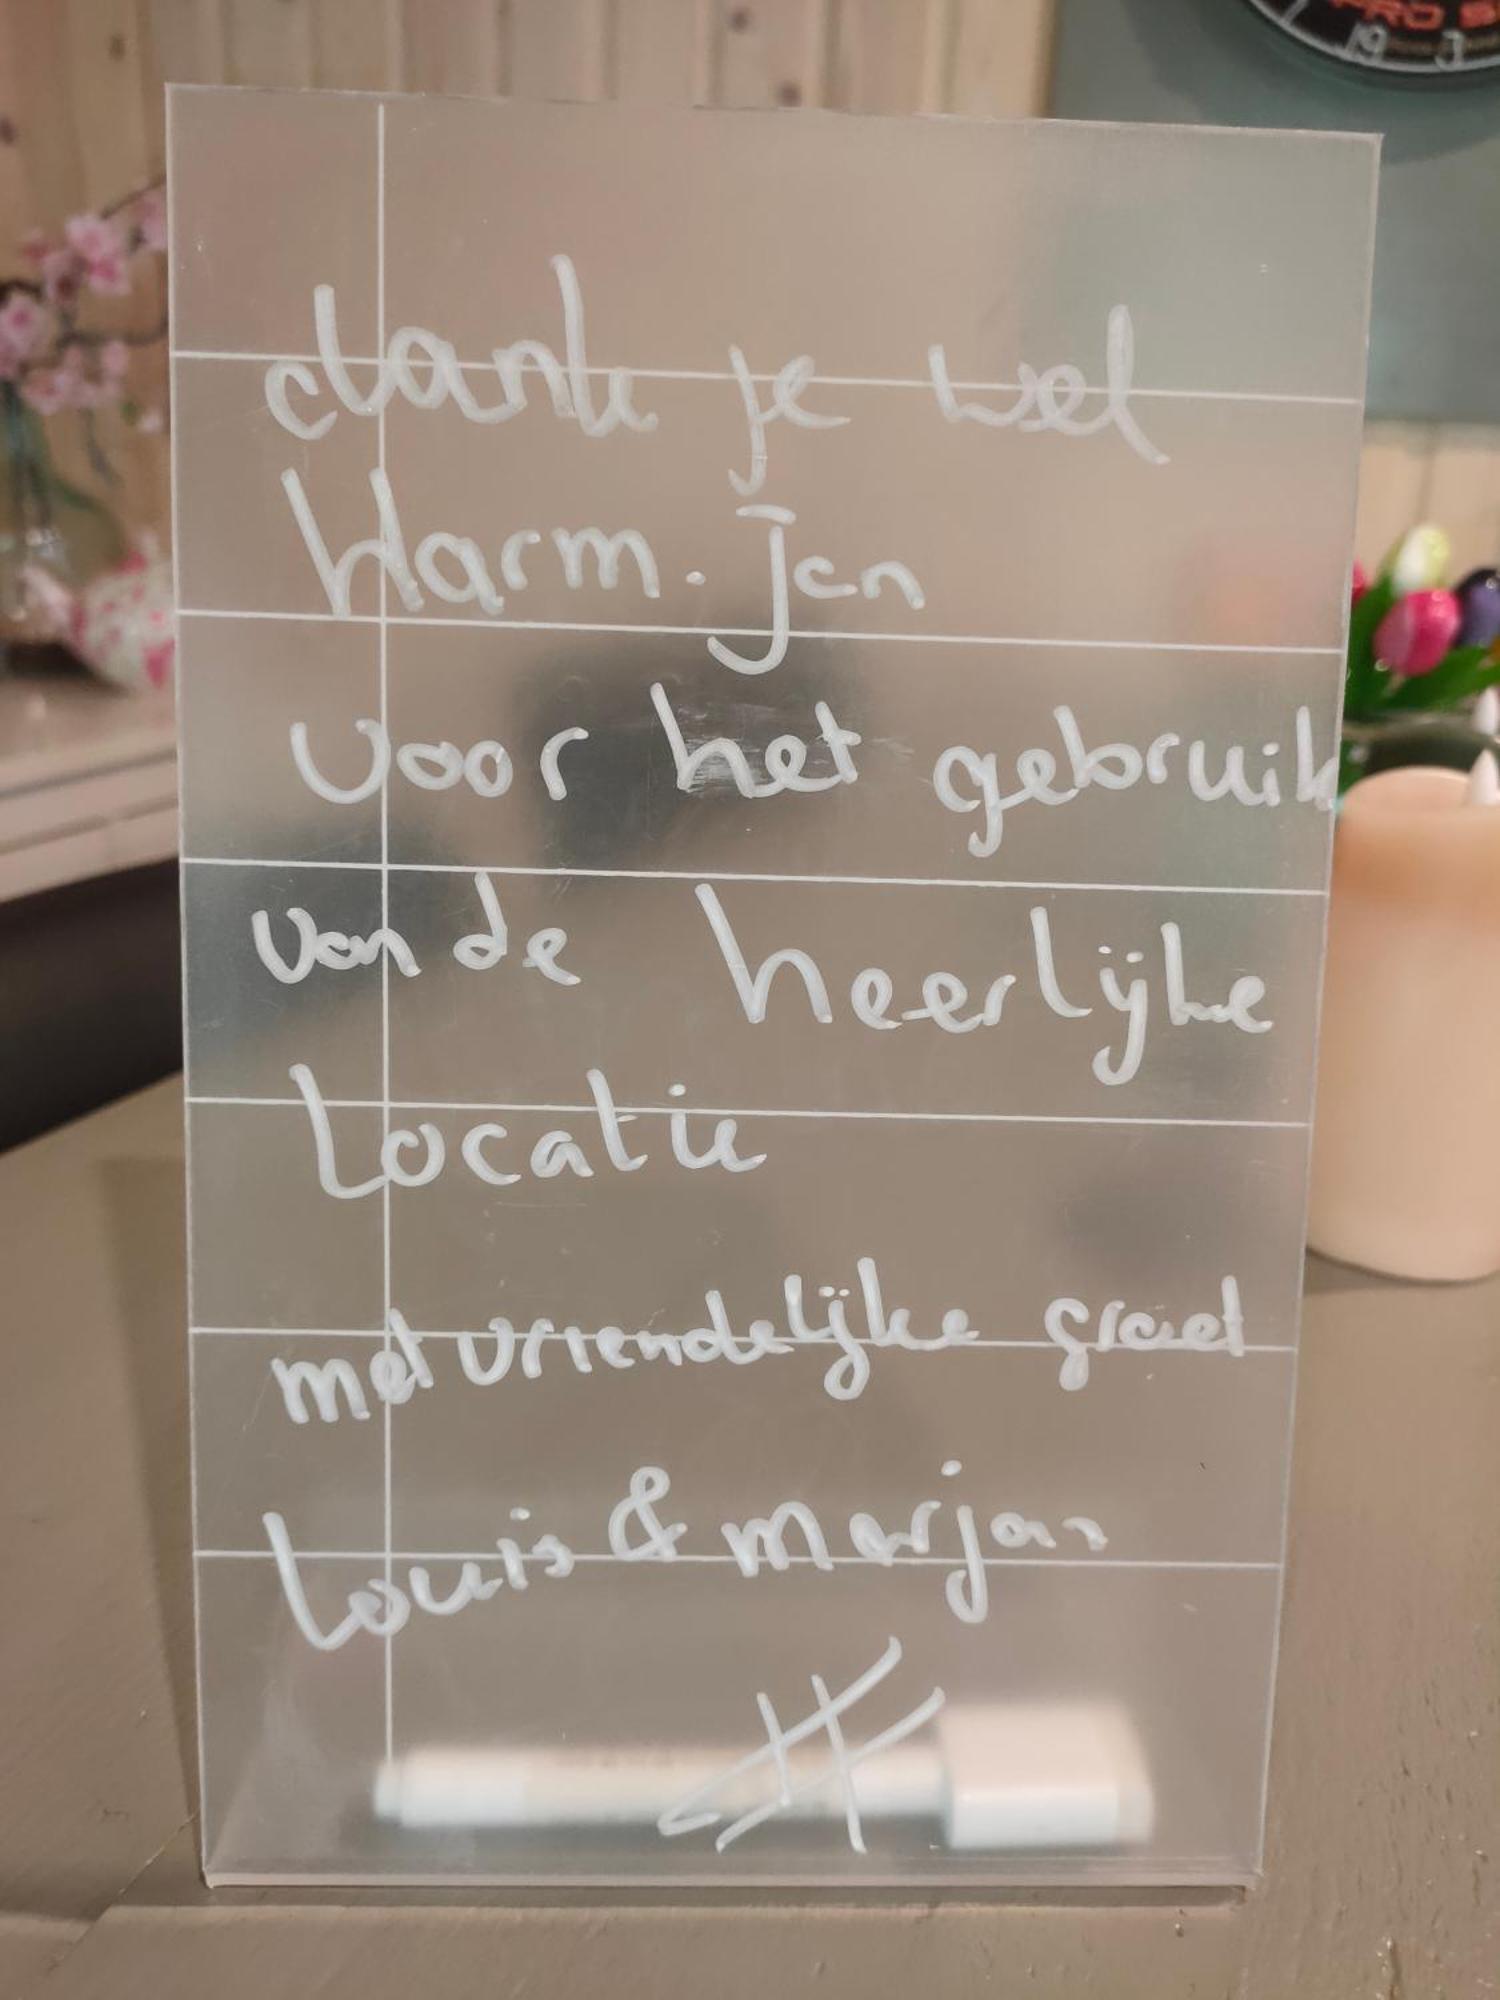 PRO
19 3
dank je wel
Harm-Jan
voor het gebruik
van de heerlijke
Locatie
met vriendelijke groet
Louis & Marjan
#